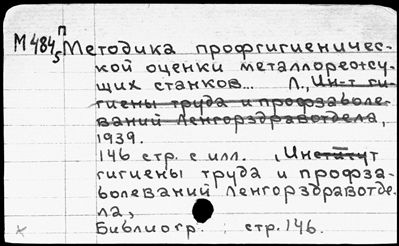 П
М484₅ Методика профгигиеничес-
кой оценки металлореотсу-
щих станков... Л., Ин-т ги-
гиены труда и профзаболе-
ваний Ленгорздравотдела,
1939.
146 стр. с илл. , Институт
гигиены труда и профза-
болеваний Ленгорздравотде-
ла,
Библиогр.: стр. 146.